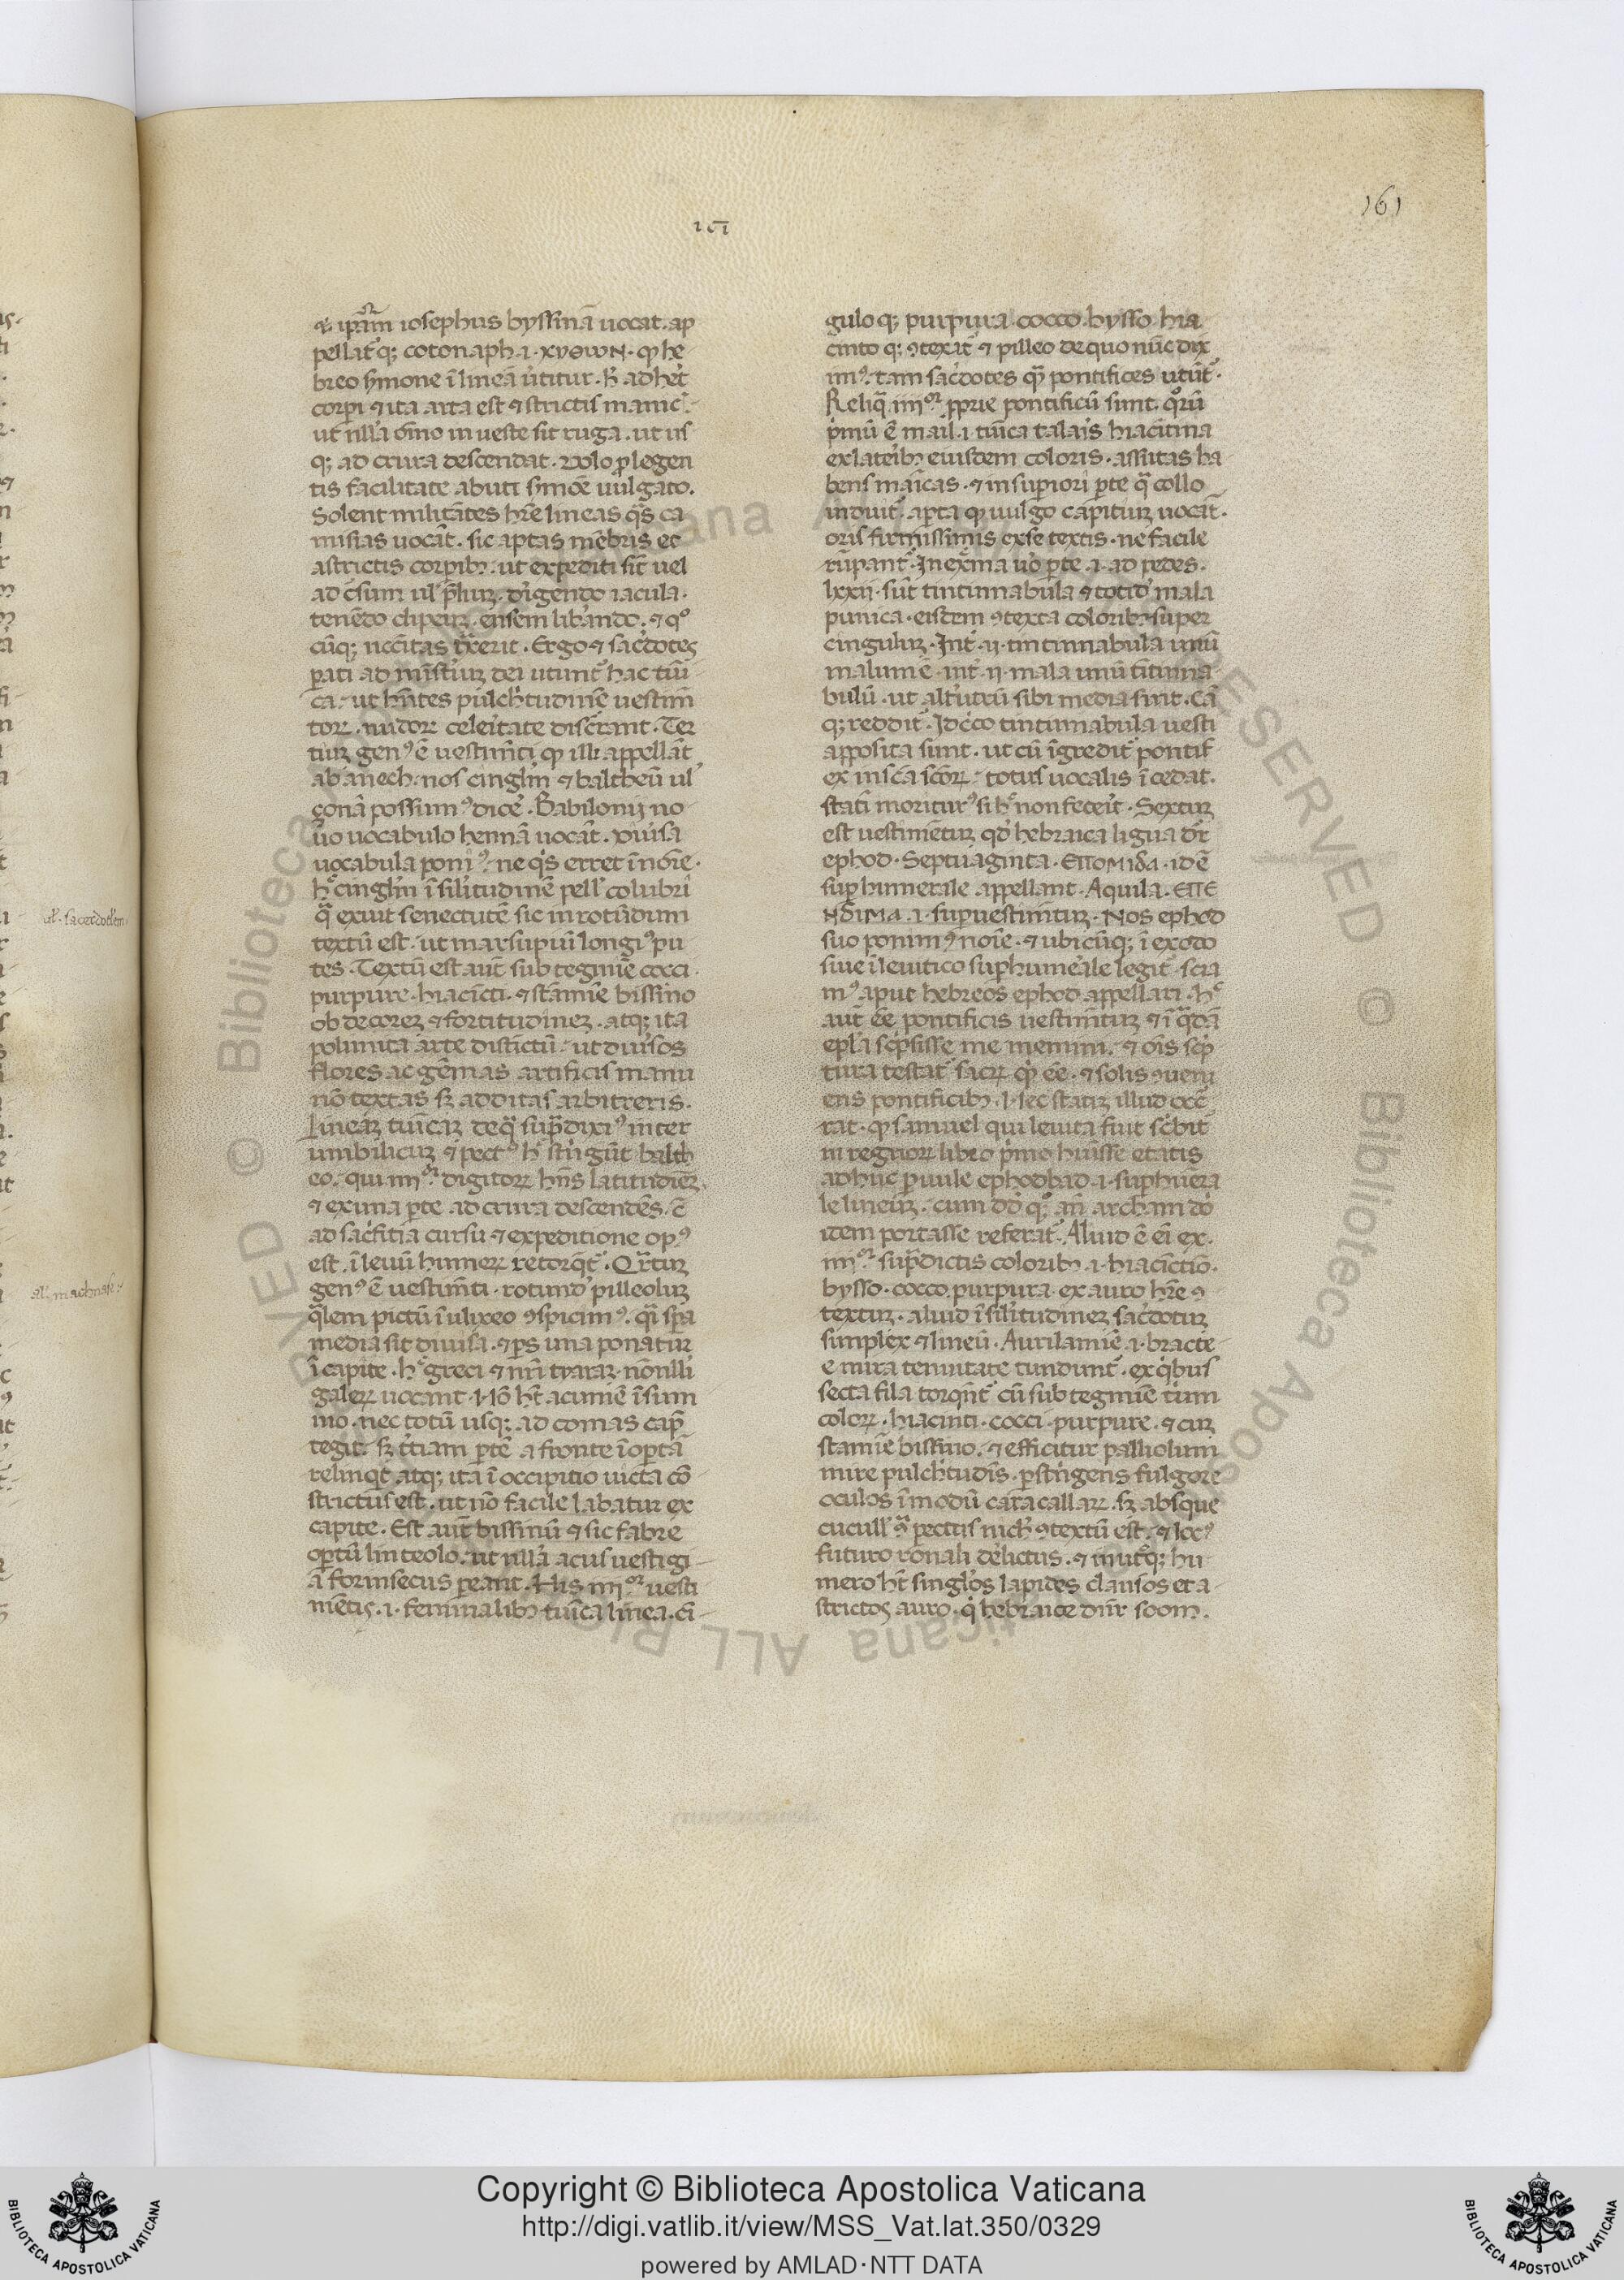 161
ıσı
qͣ ip̄aͫ iosephus byssinā uocat. ap
pellat᷒q; cotonaph .i. xyθωN. qꝫ he
breo s̄mone ī lineā ūtitur. h̄ adhet᷒
corpi ⁊ ita arta est ⁊ strictis manic᷒
ut nll'a om̄o in ueste sit ruga. ut us
q; ad crura descendat. Volo ꝓ legen
tis facilitate abuti s̄moē uulgato.
Solent militātes hr̄e lineas q̄s ca
misias uocāt. sic aptas mēbris et
astrictis corpib; ut expediti sīt uel
ad c̄sum ul' p̄liuꝫ. d'igendo iacula.
tenēdo clipeuꝫ. ensem lib'ando. ⁊ qͦ
cūq; necc̄itas t̄xerit. Ergo ⁊ sac̄dotes
ꝑati ad minist'iuꝫ dei utunt᷒ hac tūi
ca. ut hn̄tes pulch'tudinē uestim̄
toꝝ. nudoꝝ celeitate disc̄rant. Ter
tiuꝫ gen᷒ ē uestim̄ti qꝫ illi appellāt
abanech. nos cingl'm ⁊ baltheū ul'
çonā possum᷒ dice᷒. Babilonij no
uo uocabulo hemiā uocāt. Diu'sa
uocabula ponim᷒. ne q̇s erret ī noīe.
hͦ cingl'm ī sil'itudinē pell' colubri
q̄ exuit senectutē sic in rotūdum
textū est. ut marsupiū longi᷒ pu
tes. Textū est aut̄ subtegmīe cocci.
purpure. hiacīcti. ⁊ stāmīe bissino
ob decoreꝫ ⁊ fortitudineꝫ. atq; ita
polimita arte distictū. ut diu'sos
flores ac gēmas artificis manu
nō textas sꝫ additas arbitreris.
Lineāꝫ tunicaꝫ de q̄ sup̄ dixi᷒ inter
umbilicuꝫ ⁊ pect᷒ hͦ st'ngūt balth
eo. qui iiijᵒʳ digitoꝝ hn̄s latitudīeꝫ.
⁊ ex una ꝑte ad crura descendēs. c̄
ad sac'fitia cursu ⁊ expeditione op᷒
est. ī leuū humeꝝ retorq̄t᷒. Qr̄tuꝫ
gen᷒ ē uestim̄ti. rotund᷒ pilleoluꝫ
q̄lem pictū ī ulixeo ꝯspicim᷒. q̄i spa
media sit diuisa. ⁊ ꝑs una ponatur
ī capite. hͦ greci ⁊ nr̄i tyaraꝫ. nōnlli
galeꝝ uocant. Nō ht̄ acumīe ī sum
mo. nec totū usq; ad comas cap̄
tegit. sꝫ t̄tiam ꝑtē a fronte īoꝑtā
relinq̄t. atq; ita ī occipitio uicta cō
strictus est. ut nō facile labatur ex
capite. Est aut̄ bissinū ⁊ sic fabre
oꝑtū linteolo. ut nll'a acus uestigi
a forinsecus pareant. His iiijᵒʳ uesti
mētis. i. feminalib; tūica linea. ci
gulo q; purpura. cocco. bysso. hia
cinto q; ꝯtexit᷒ ⁊ pilleo de quo nūc dix
im᷒. tam sac̄dotes qꝫ pontifices utūt᷒.
Reliq̄ iiijᵒʳ ꝓprie pontificū sunt. qͦrū
p'mū ē mail .i. tūica talais hiacītina
ex lateib; eiusdem coloris. assutas ha
bens maīcas. ⁊ in supiori ꝑte q̄ collo
induit᷒. aꝑta qꝫ uulgo capituꝫ uocāt.
oris firmissimis ex se textis. ne facile
rūpant᷒. In ext̄ma u'o ꝑte .i. ad pedes.
lxxij. sūt tintinnabula ⁊ totid᷒ mala
punica. eisdem ꝯtexta colorib; super
cinguluꝫ. Int᷒ .ij. tintinnabula unū
malum ē. int᷒ .ij. mala unū tintina
bulū. ut alt'utrū sibi media sint. Cā
q; reddit᷒. Idc̄co tintinnabula uesti
apposita sunt. ut cū īgredit᷒ pontif
ex in sc̄a scōꝝ. totus uocalis īcedat.
statī moritur᷒ si hͦ non feceit᷒. Sextuꝫ
est uestimētuꝫ qd᷒ hebraica ligua dr̄
ephod. Septuaginta. EΠOMIδA. id ē
suphumerale appellant. Aquila. EΠE
NδIMA .i. supuestim̄tuꝫ. Nos ephod
suo ponim᷒ noīe. ⁊ ubicūq; ī exodo
siue ī leuitico suphume'ale legit᷒. scia
m᷒ aput hebreos ephod appellari. hͦ
aut̄ eē pontificis uestim̄tuꝫ ⁊ ī q̄dā
epl'a sc'psisse me memini. ⁊ oīs sc'p
tura testat᷒ sacꝝ qꝫ eē. ⁊ solis ꝯueni
ens pontificib;. Nec statiꝫ illud occ̄
rat. qꝫ samuel qui leuita fuit sc'bit᷒
in regnoꝝ libro p'mo hūisse etatis
adhuc ꝑuule ephod bad .i. suphum̄a
le lineuꝫ. cum dd᷒ q; an̄ archam do
idem portasse referat᷒. Aliud ē ei ex.
iiijᵒʳ sup̄dictis colorib; .i. hiacīctio.
bysso. cocco. purpura. ex auro hr̄e ꝯ
textuꝫ. aliud ī sil'itudineꝫ sac̄dotuꝫ
simplex ⁊ lineū. Auri lamīe .i. bracte
e mira tenuitate tundunt᷒. ex q'bus
secta fila torq̄nt᷒ cū subtegmīe t'um
coloꝝ. hiacinti. cocci. purpure. ⁊ cuꝫ
stamīe bissino. ⁊ efficitur palliolum
mire pulch'tudis. ꝑst'ngens fulgore
oculos ī modū caracallaꝝ. sꝫ absque
cucull'. ꝯ pectus nich᷒ ꝯtextū est. ⁊ loc᷒
futuro ronali de'lictus. ⁊ in utͦq; hu
mero ht̄ singl'os lapides clausos et a
strictos auro. q' hebraice dnr̄ soom.
ul'. sacerdotlem
al'. machnase
Copyright © Biblioteca Apostolica Vaticana
http://digi.vatlib.it/view/MSS_Vat.lat.350/0329
powered by AMLAD·NTT DATA
BIBLIOTECA APOSTOLICA VATICANA
BIBLIOTECA APOSTOLICA VATICANA